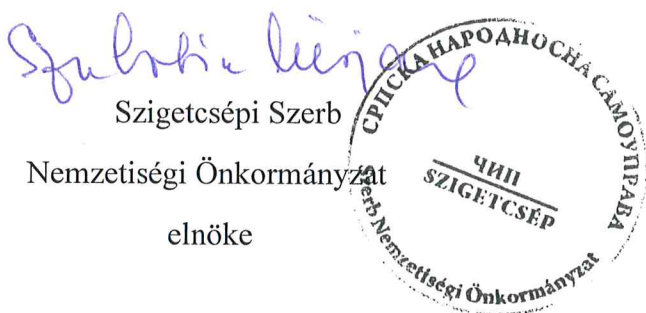 Szigetcsépi Szerb
Nemzetiségi Önkormányzat
elnöke
СРПСКА НАРОДНОСНА САМОУПРАВА
ЧИП
SZIGETCSÉP
Szerb Nemzetiségi Önkormányzat